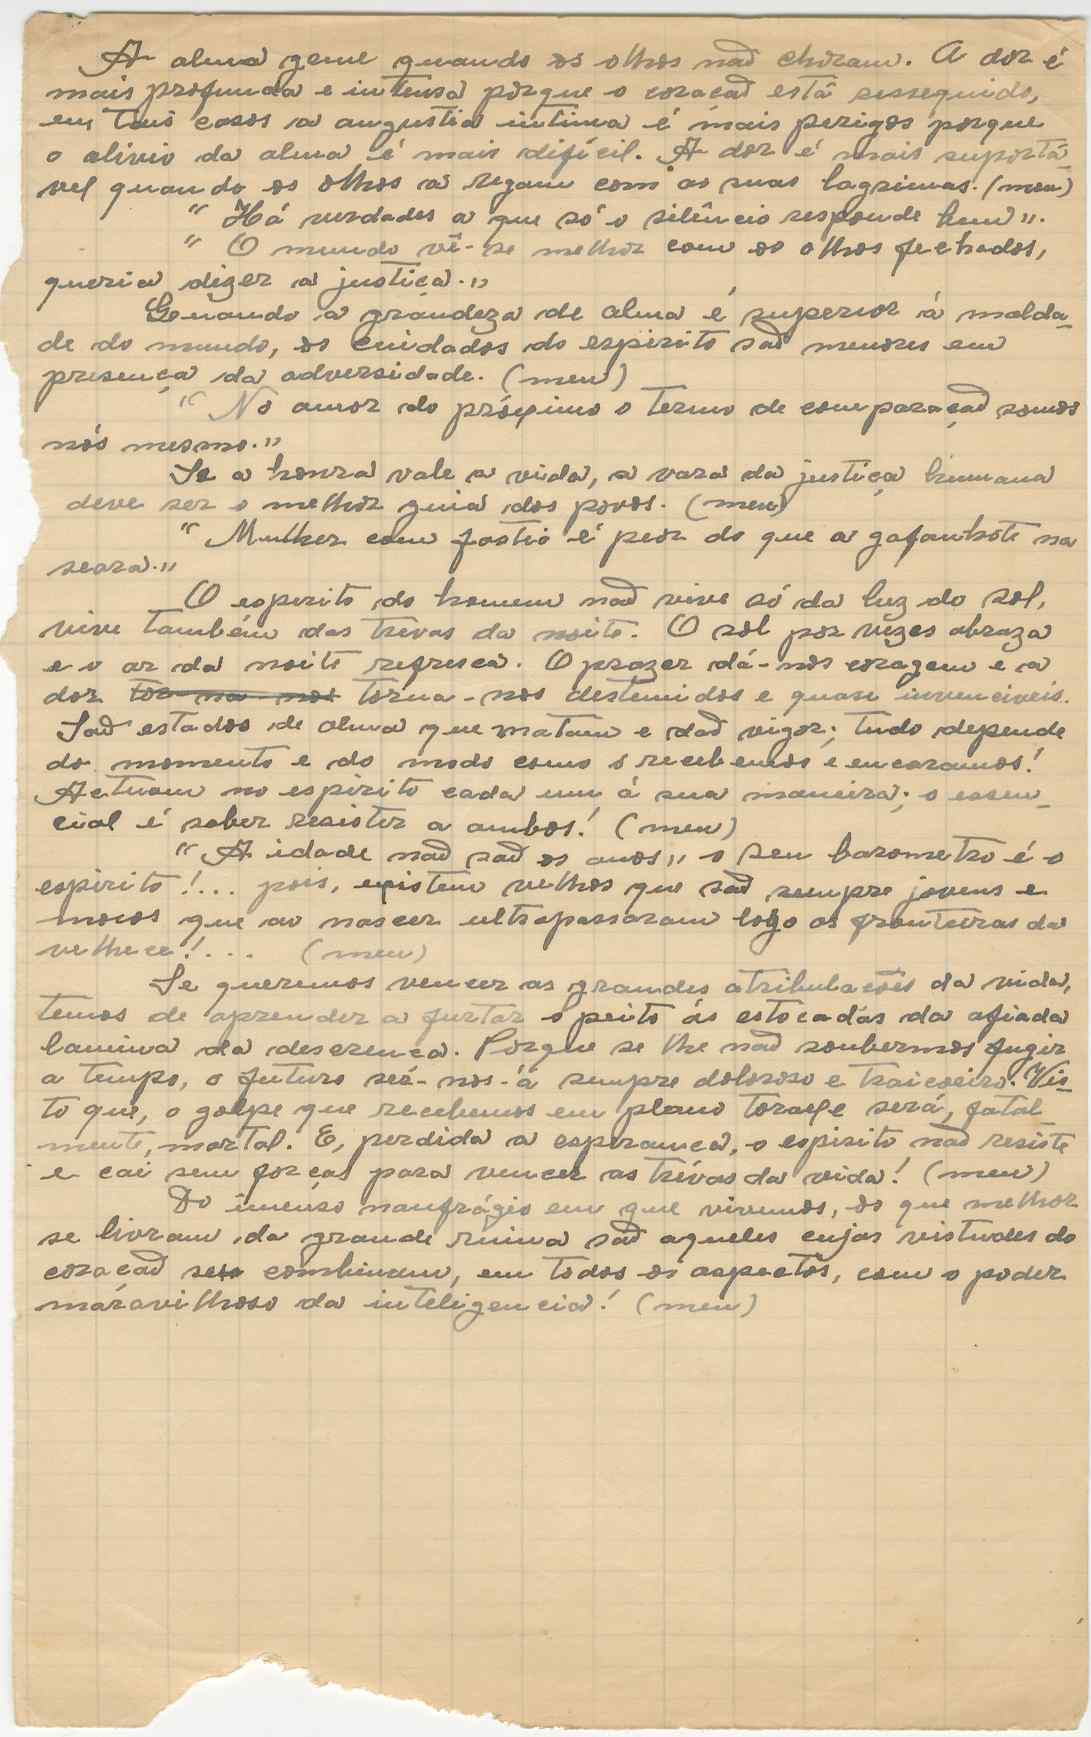 A alma geme quando os olhos não choram. A dor é
mais profunda e intensa porque o coração está ressequido,
em tais casos a angustia intima é mais perigos porque
o alivio da alma é mais difícil. A dor é mais suportá-
vel quando os olhos a regam com as suas lagrimas. (meu)
"Há verdades a que só o silêncio responde bem".
"O mundo vê-se melhor com os olhos fechados,
queria dizer a justiça."
Quando a grandeza de alma é superior á malda-
de do mundo, os cuidados do espirito são menores em
presença da adversidade. (meu)
"No amor do próximo o termo de comparação somos
nós mesmo."
Se a honra vale a vida, a vara da justiça humana
deve ser o melhor guia dos povos. (meu)
"Mulher com fastio é peor do que a gafanhoto na
seara."
O espirito do homem não vive só da luz do sol,
vive também das trevas da noite. O sol por vezes abraza
e o ar da noite refresca. O prazer dá-nos coragem e a
dor tor na nos torna-nos destemidos e quasi invenciveis.
São estados de alma que matam e dão vigor; tudo depende
do momento e do modo como o recebemos e encaramos!
Actuam no espirito cada um á sua maneira; o essen-
cial é saber resistir a ambos! (meu)
"A idade não são os anos" o seu barometro é o
espirito!... pois, existem velhos que são sempre jovens e
mocos que ao nascer ultrapassaram logo as fronteiras da
velhece!... (meu)
Se queremos vencer as grandes atribulações da vida,
temos de aprender a furtar o peito ás estocadas da afiada
lamina da descrença. Porque se lhe não soubermos fugir
a tempo, o futuro ser-nos-á sempre doloroso e traiçoeiro. Vis-
to que, o golpe que recebemos em plano será, fatal
mente, mortal. E, perdida a esperança, o espirito não resiste
e cai sem forças para vencer as trévas da vida! (meu)
Do imenso naufrágio em que vivemos, os que melhor
se livram da grande ruina são aqueles cujas virtudes do
coração se combinam, em todos os aspectos, com o poder
maravilhoso da inteligencia! (meu)